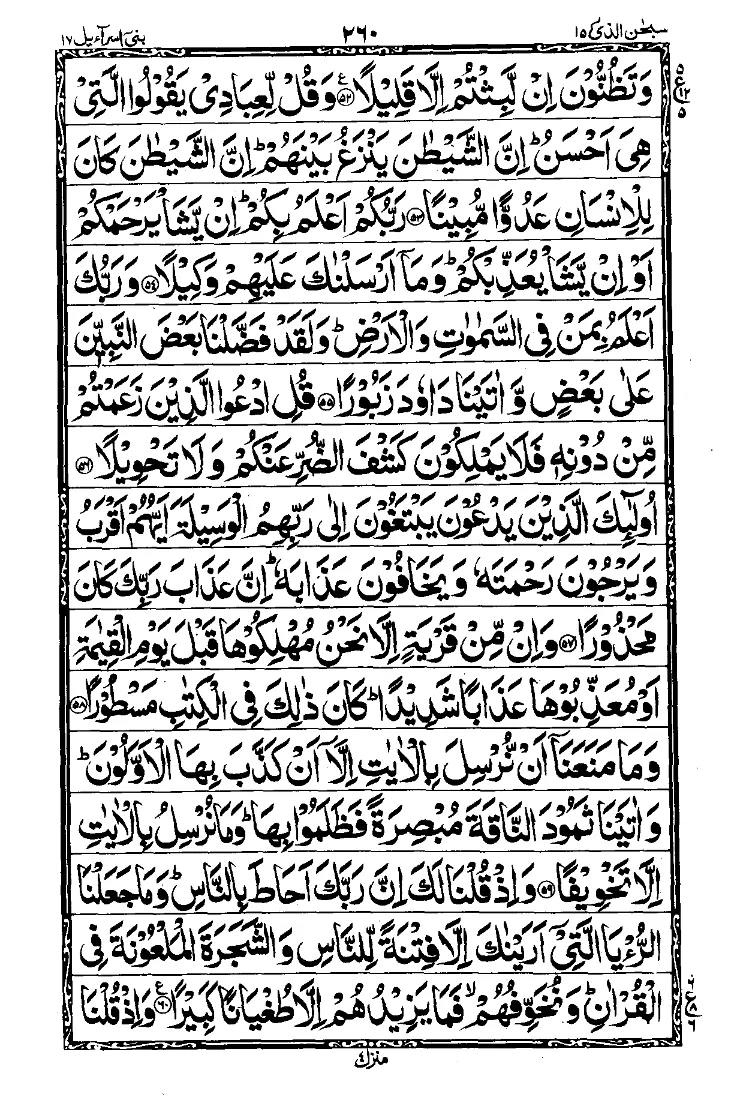 سبحٰن الذی ۱۵
۲۶۰
بنی اسرآءیل ۱۷
وَتَظُنُّوْنَ اِنْ لَّبِثْتُمْ اِلَّا قَلِیْلًا ﴿۵۲﴾ وَقُلْ لِّعِبَادِیْ یَقُوْلُوا الَّتِیْ
هِیَ اَحْسَنُ ؕ اِنَّ الشَّیْطٰنَ یَنْزَغُ بَیْنَهُمْ ؕ اِنَّ الشَّیْطٰنَ كَانَ
لِلْاِنْسَانِ عَدُوًّا مُّبِیْنًا ﴿۵۳﴾ رَبُّكُمْ اَعْلَمُ بِكُمْ ؕ اِنْ یَّشَاْ یَرْحَمْكُمْ
اَوْ اِنْ یَّشَاْ یُعَذِّبْكُمْ ؕ وَمَاۤ اَرْسَلْنٰكَ عَلَیْهِمْ وَكِیْلًا ﴿۵۴﴾ وَرَبُّكَ
اَعْلَمُ بِمَنْ فِی السَّمٰوٰتِ وَالْاَرْضِ ؕ وَلَقَدْ فَضَّلْنَا بَعْضَ النَّبِیّٖنَ
عَلٰی بَعْضٍ وَّاٰتَیْنَا دَاوٗدَ زَبُوْرًا ﴿۵۵﴾ قُلِ ادْعُوا الَّذِیْنَ زَعَمْتُمْ
مِّنْ دُوْنِهٖ فَلَا یَمْلِكُوْنَ كَشْفَ الضُّرِّ عَنْكُمْ وَلَا تَحْوِیْلًا ﴿۵۶﴾
اُولٰٓىِٕكَ الَّذِیْنَ یَدْعُوْنَ یَبْتَغُوْنَ اِلٰی رَبِّهِمُ الْوَسِیْلَةَ اَیُّهُمْ اَقْرَبُ
وَیَرْجُوْنَ رَحْمَتَهٗ وَیَخَافُوْنَ عَذَابَهٗ ؕ اِنَّ عَذَابَ رَبِّكَ كَانَ
مَحْذُوْرًا ﴿۵۷﴾ وَاِنْ مِّنْ قَرْیَةٍ اِلَّا نَحْنُ مُهْلِكُوْهَا قَبْلَ یَوْمِ الْقِیٰمَةِ
اَوْ مُعَذِّبُوْهَا عَذَابًا شَدِیْدًا ؕ كَانَ ذٰلِكَ فِی الْكِتٰبِ مَسْطُوْرًا ﴿۵۸﴾
وَمَا مَنَعَنَاۤ اَنْ نُّرْسِلَ بِالْاٰیٰتِ اِلَّاۤ اَنْ كَذَّبَ بِهَا الْاَوَّلُوْنَ ؕ
وَاٰتَیْنَا ثَمُوْدَ النَّاقَةَ مُبْصِرَةً فَظَلَمُوْا بِهَا ؕ وَمَا نُرْسِلُ بِالْاٰیٰتِ
اِلَّا تَخْوِیْفًا ﴿۵۹﴾ وَاِذْ قُلْنَا لَكَ اِنَّ رَبَّكَ اَحَاطَ بِالنَّاسِ ؕ وَمَا جَعَلْنَا
الرُّءْیَا الَّتِیْۤ اَرَیْنٰكَ اِلَّا فِتْنَةً لِّلنَّاسِ وَالشَّجَرَةَ الْمَلْعُوْنَةَ فِی
الْقُرْاٰنِ ؕ وَنُخَوِّفُهُمْ ۙ فَمَا یَزِیْدُهُمْ اِلَّا طُغْیَانًا كَبِیْرًا ﴿۶۰﴾ وَاِذْ قُلْنَا